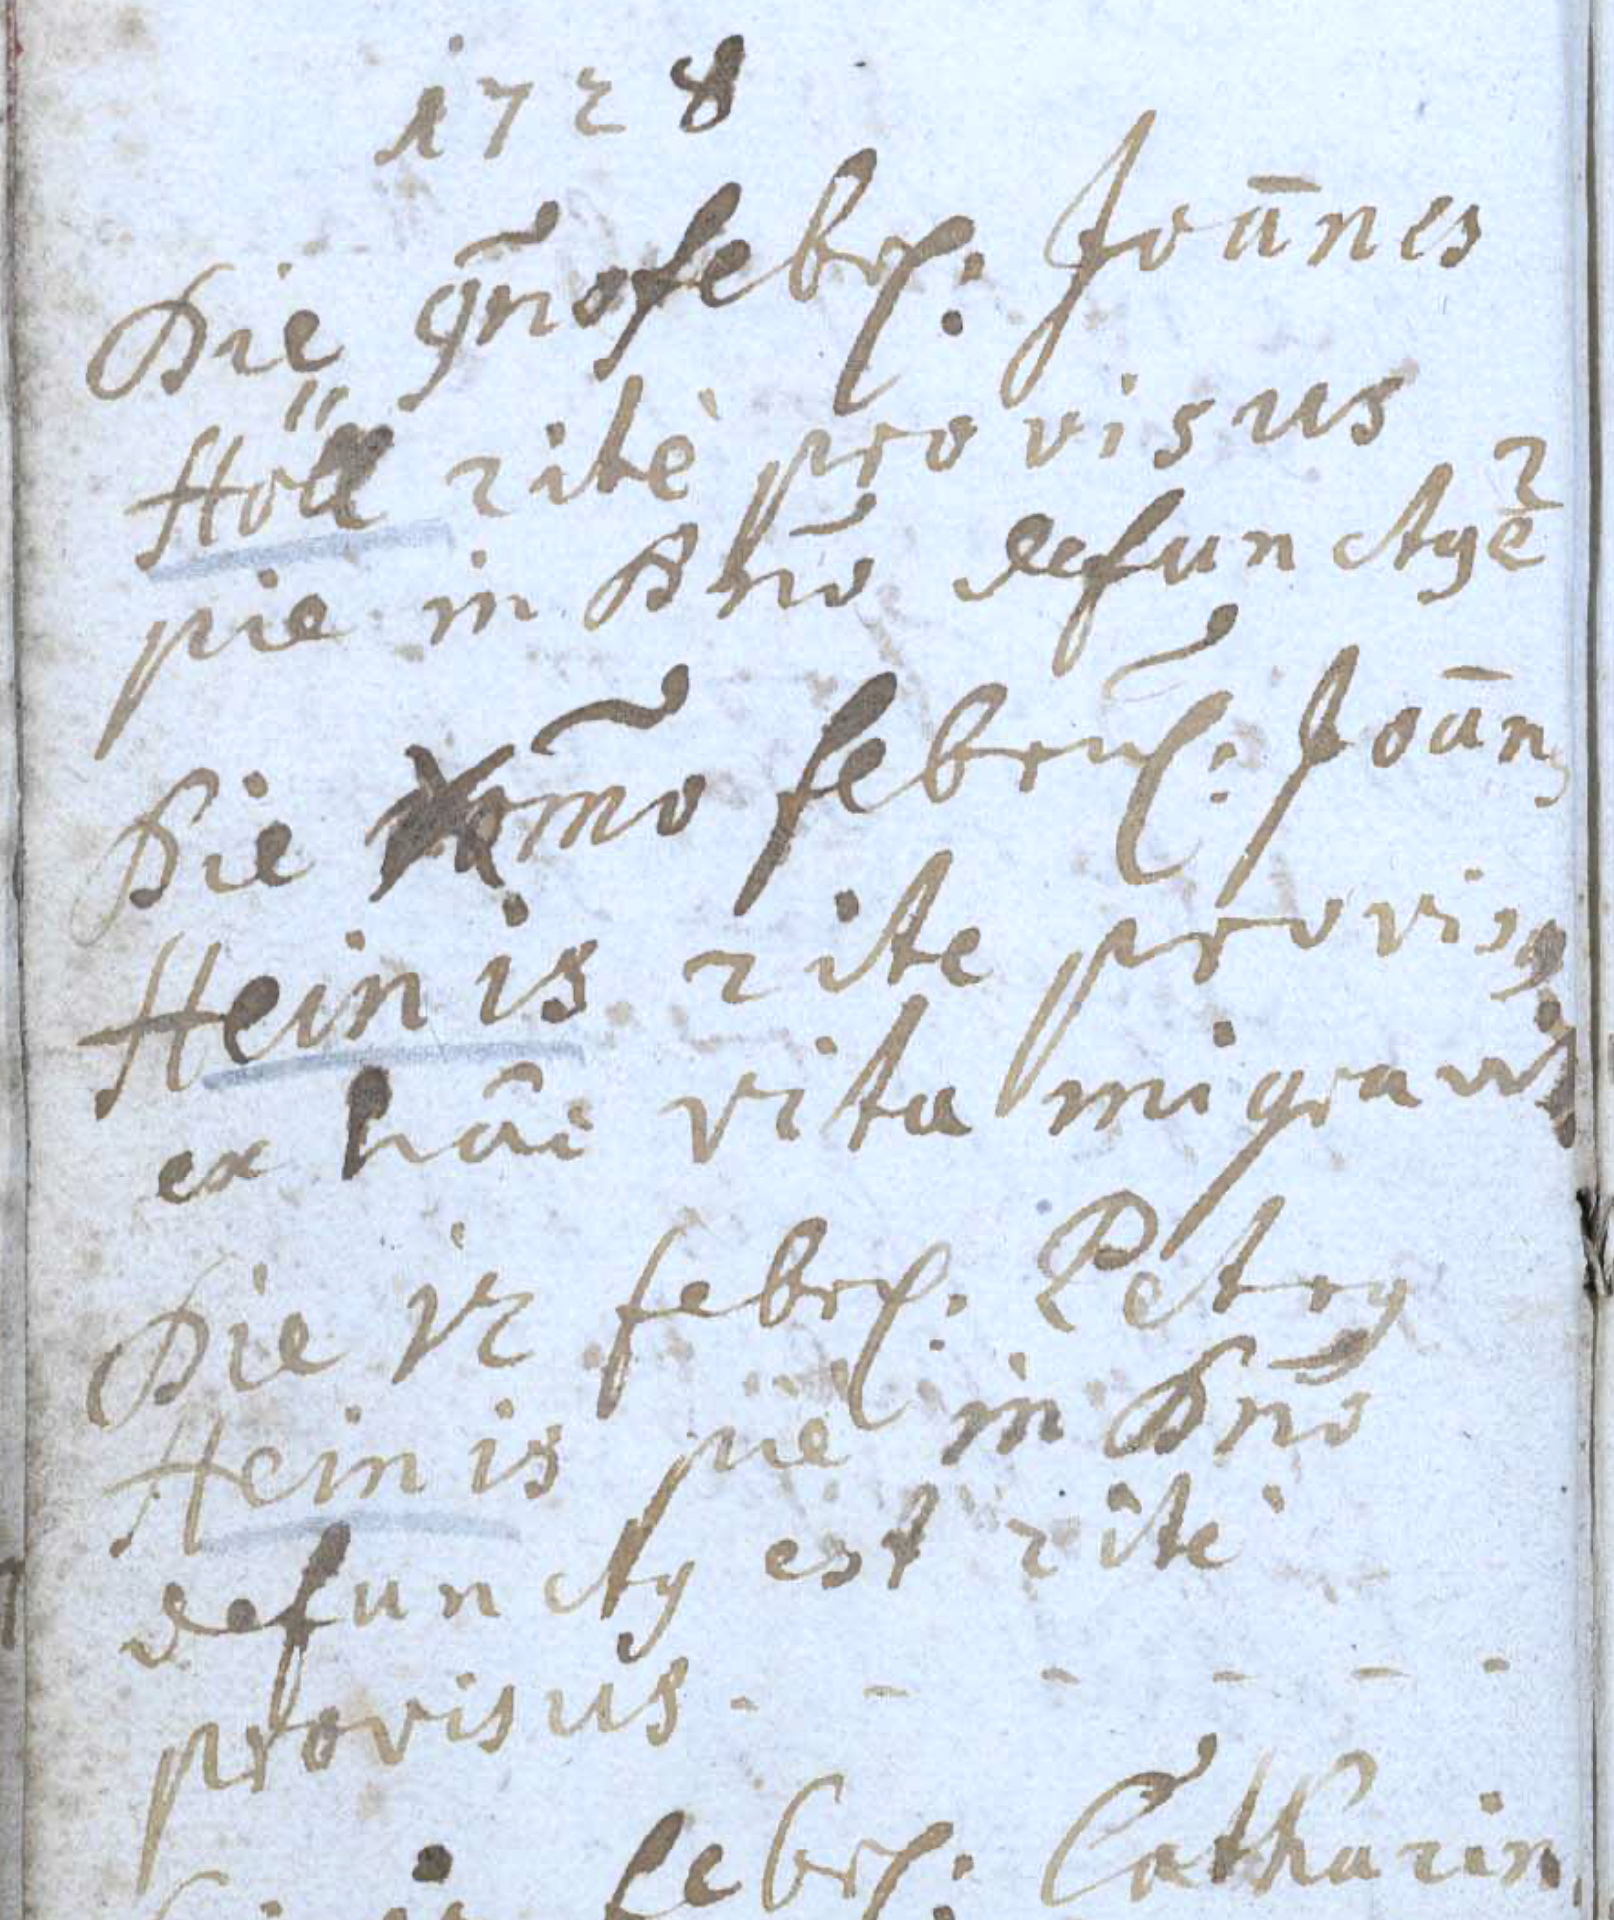 1728
Die 9no febr: Joānes
Höll ritè provisus
pie in Dno defunctus ē
Die Xmo febru: Joānes
Heinis rite provisus
ex hâc vita migravit
Die 12 febr: Petrus
Heinis piè in Dno
defunctus est ritè
provisus - - - - -
febr: Catharin